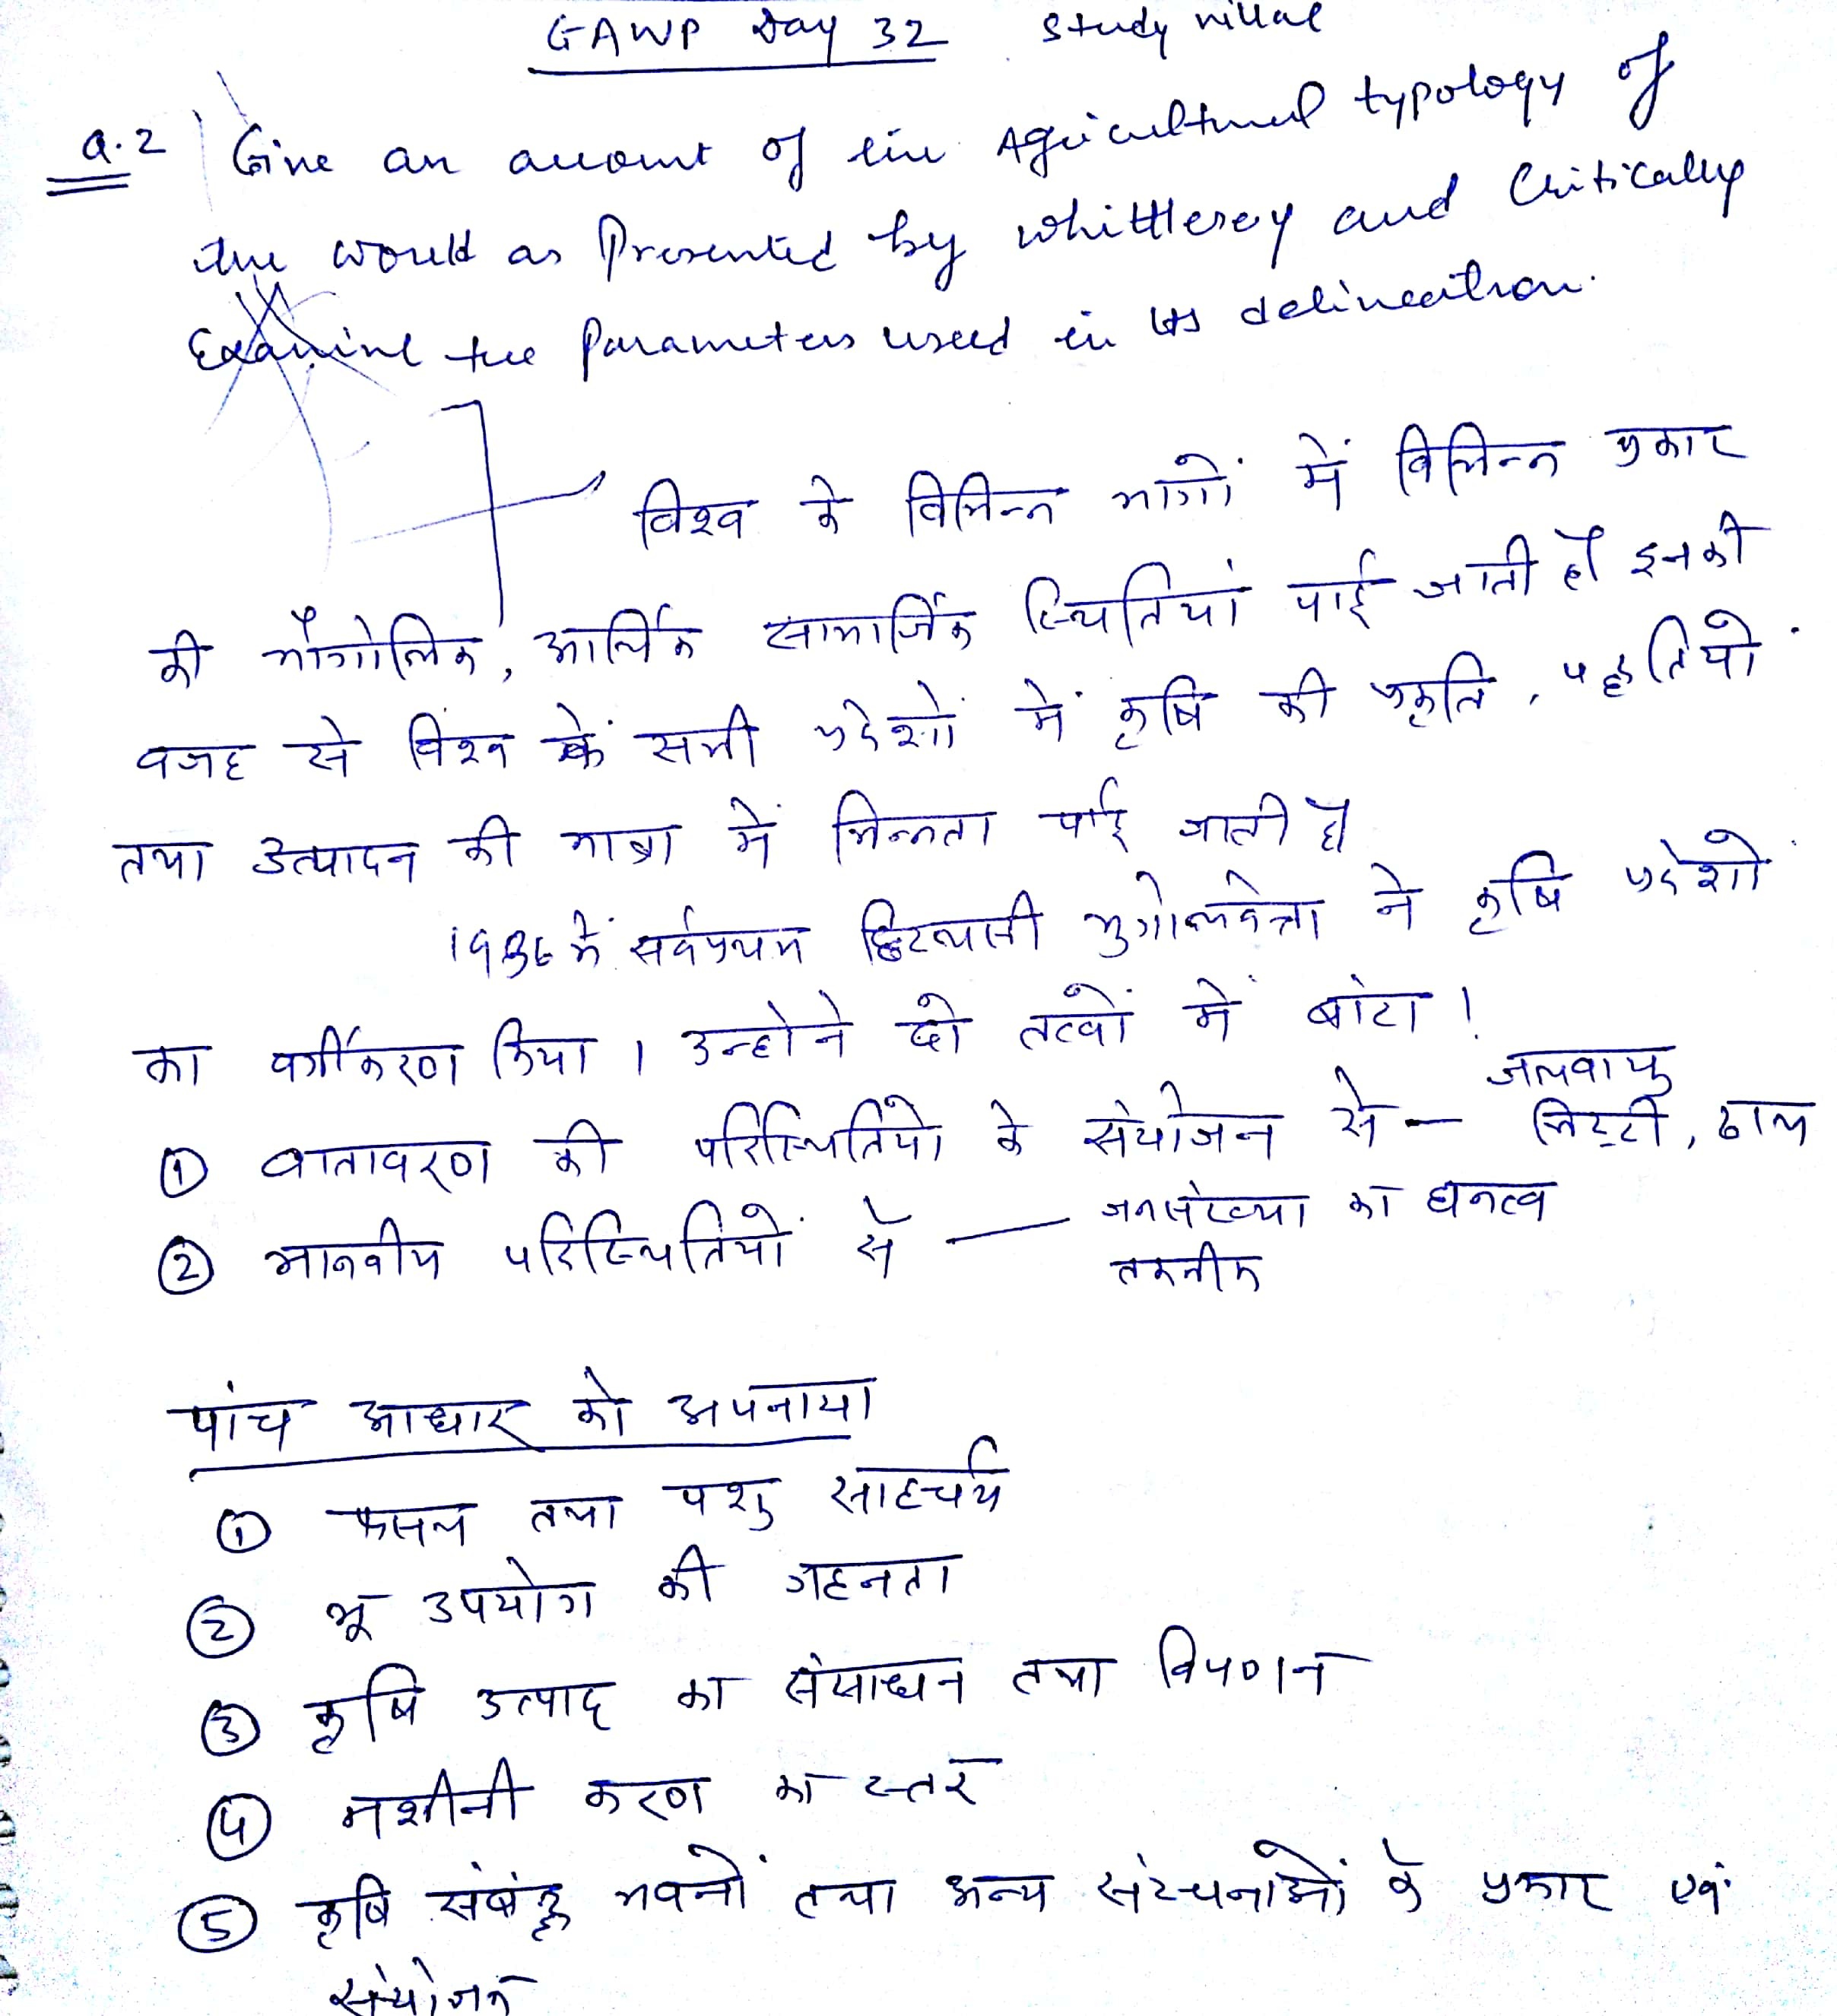 GAWP Day 32 Study
Q.2 Give an account of the Agricultural typology of
the world as Presented by Whittlesey and Critically
Examine the Parameters used in its delineation.
विश्व के विभिन्न भागों में विभिन्न प्रकार
की भौगोलिक, आर्थिक सामाजिक स्थितियां पाई जाती है इनकी
वजह से विश्व के सभी प्रदेशों में कृषि की प्रकृति, पद्धतियों
तथा उत्पादन की मात्रा में भिन्नता पाई जाती है
1936 में सर्वप्रथम भुगोलवेत्ता ने कृषि प्रदेशों
का वर्गीकरण किया । उन्होने दो तत्वों में बांटा !
① वातावरण की परिस्थितियो के संयोजन से — जलवायु
मिट्टी, ढाल
② मानवीय परिस्थितियों से — जनसंख्या का घनत्व
तकनीक
पांच आधार को अपनाया
① फसल तथा पशु साहचर्य
② भू उपयोग की गहनता
③ कृषि उत्पाद का संसाधन तथा विपणन
④ मशीनी करण का स्तर
⑤ कृषि संबंद्ध भवनों तथा अन्य संरचनाओं के प्रकार एवं
संयोजन